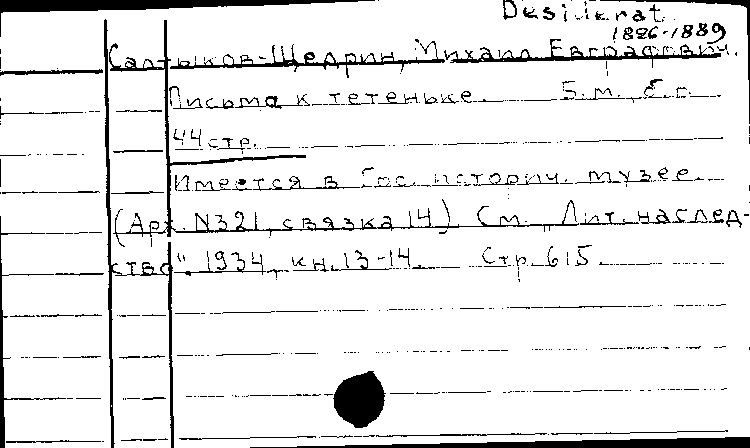 Desiderat.
1826-1889
Салтыков-Щедрин, Михаил Евграфович.
Письма к тетеньке. Б.м., б.г.
44 стр.
Имеется в Гос. историч. музее.
(Арх. N321, связка 14). См. „Лит. наслед-
ство". 1934, кн. 13-14. Стр. 615.